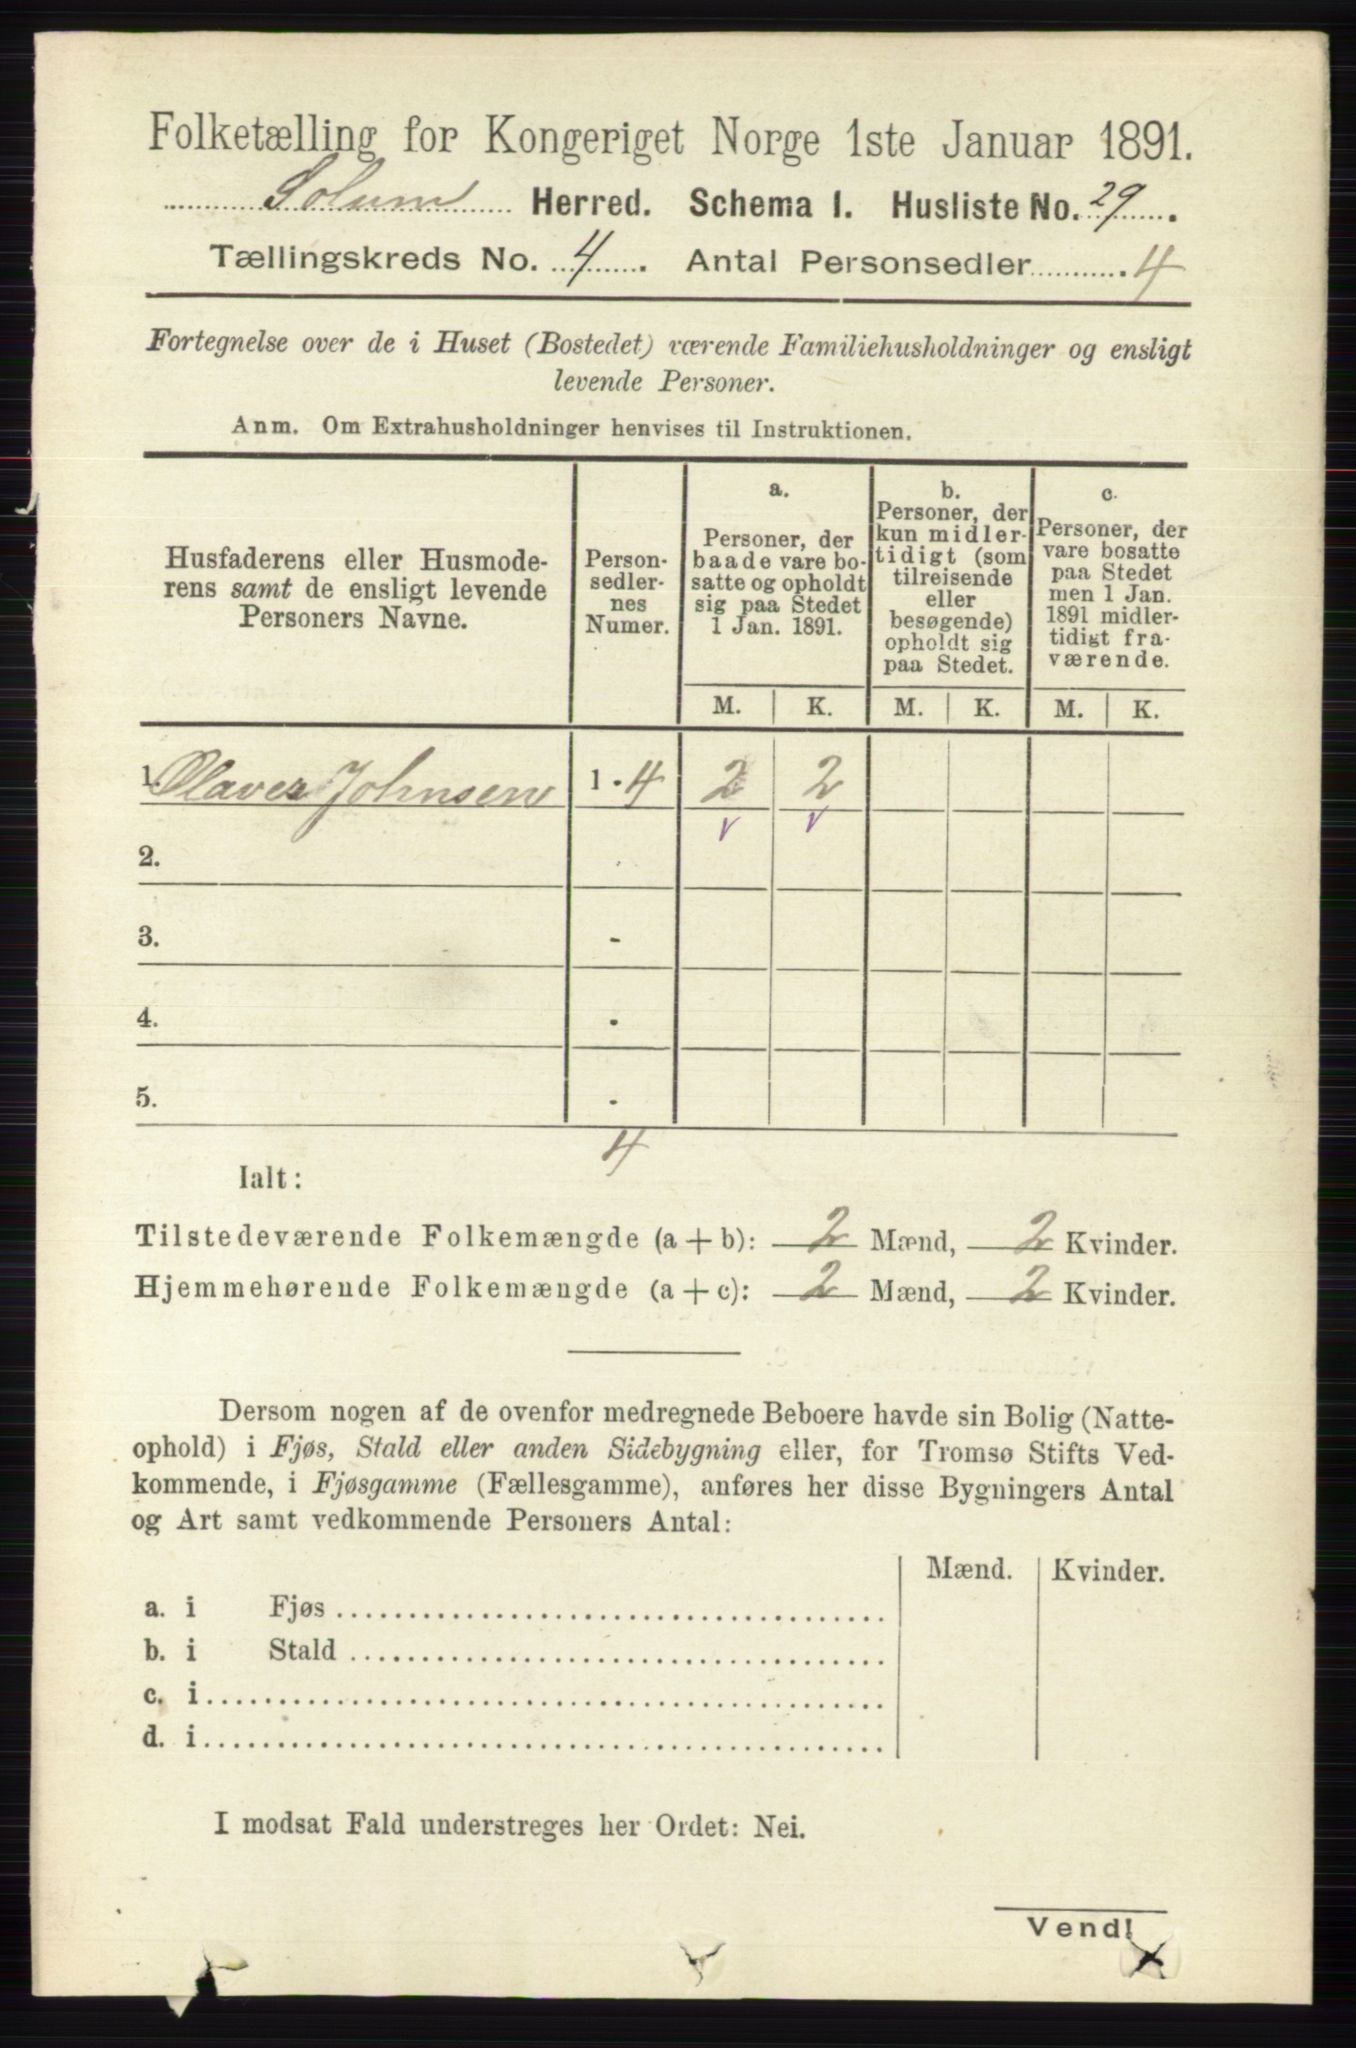 Folketælling for Kongeriget Norge 1ste Januar 1891.
Solum Herred. Schema I. Husliste No. 29.
Tællingskreds No. 4. Antal Personsedler 4
Fortegnelse over de i Huset (Bostedet) værende Familiehusholdninger og ensligt
levende Personer.
Anm. Om Extrahusholdninger henvises til Instruktionen.
Husfaderens eller Husmode-
rens samt de ensligt levende
Personers Navne.
Person-
sedler-
nes
Numer.
a.
Personer, der
baade vare bo-
satte og opholdt
sig paa Stedet
1 Jan. 1891.
b.
Personer, der
kun midler-
tidigt (som
tilreisende
eller
besøgende)
opholdt sig
paa Stedet.
c.
Personer, der
vare bosatte
paa Stedet
men 1 Jan.
1891 midler-
tidigt fra-
værende.
M. K. M. K. M. K.
1. Olaves Johnsen 1 - 4 2 2
2.
3. -
4. -
5. -
4
Ialt:
Tilstedeværende Folkemængde (a + b): 2 Mænd, 2 Kvinder.
Hjemmehørende Folkemængde (a + c): 2 Mænd, 2 Kvinder.
Dersom nogen af de ovenfor medregnede Beboere havde sin Bolig (Natte-
ophold) i Fjøs, Stald eller anden Sidebygning eller, for Tromsø Stifts Ved-
kommende, i Fjøsgamme (Fællesgamme), anføres her disse Bygningers Antal
og Art samt vedkommende Personers Antal:
Mænd. Kvinder.
a. i Fjøs
b. i Stald
c. i
d. i
I modsat Fald understreges her Ordet: Nei.
Vend!